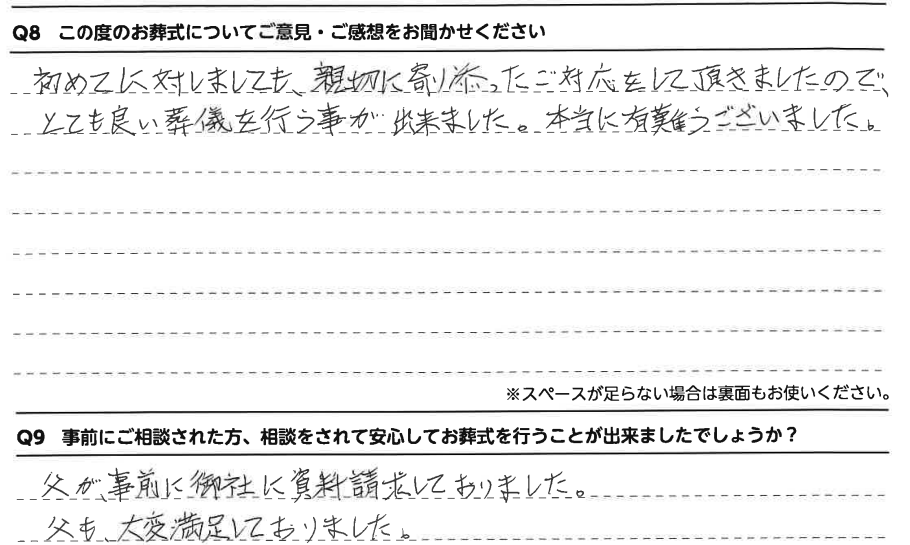 Q8 この度のお葬式についてご意見・ご感想をお聞かせください
初めてに対しましても、親切に寄り添ったご対応をして頂きましたので、
とても良い葬儀を行う事が出来ました。本当に有難うございました。
※スペースが足らない場合は裏面もお使いください。
Q9 事前にご相談された方、相談をされて安心してお葬式を行うことが出来ましたでしょうか？
父が、事前に御社に資料請求しておりました。
父も、大変満足しておりました。